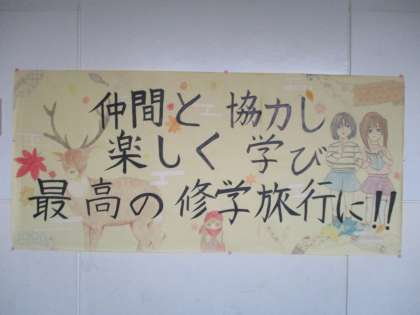 仲間と 協力し
楽しく 学び
最高の修学旅行に!!